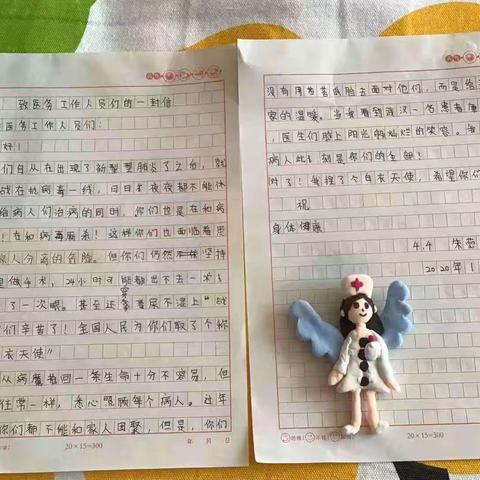 致医务工作人员们的一封信
医务工作人员们:
好!
们自从在出现了新型
战在抗病毒一线,日日
给病人们治病的同时,你们也是在和病
!在和病毒厮杀!这样你们也面临着
亲人分离的危险。但你们仍然
坚持
做4术,24小时可能都出不去一次
了一次眼。甚至还
尿不湿上“战
们辛苦了!全国人民为你们取了个称
衣天使”
从病魔
回一条生命十分不容易,但
往常一样,悉心照顾每个病人。过年
你们都不能和家人团聚,但是,你们
20×15=300
年 月 日
没有用
脸去面对他们,而是给
家的温暖。当我看到武汉一名患者
,医生们感上阳光的灿烂的笑容。
病人比
刻是你们的
对了!我捏了个白衣天使,希望你们
祝
身体健康
4.4
朱
2020年1
20×15=300